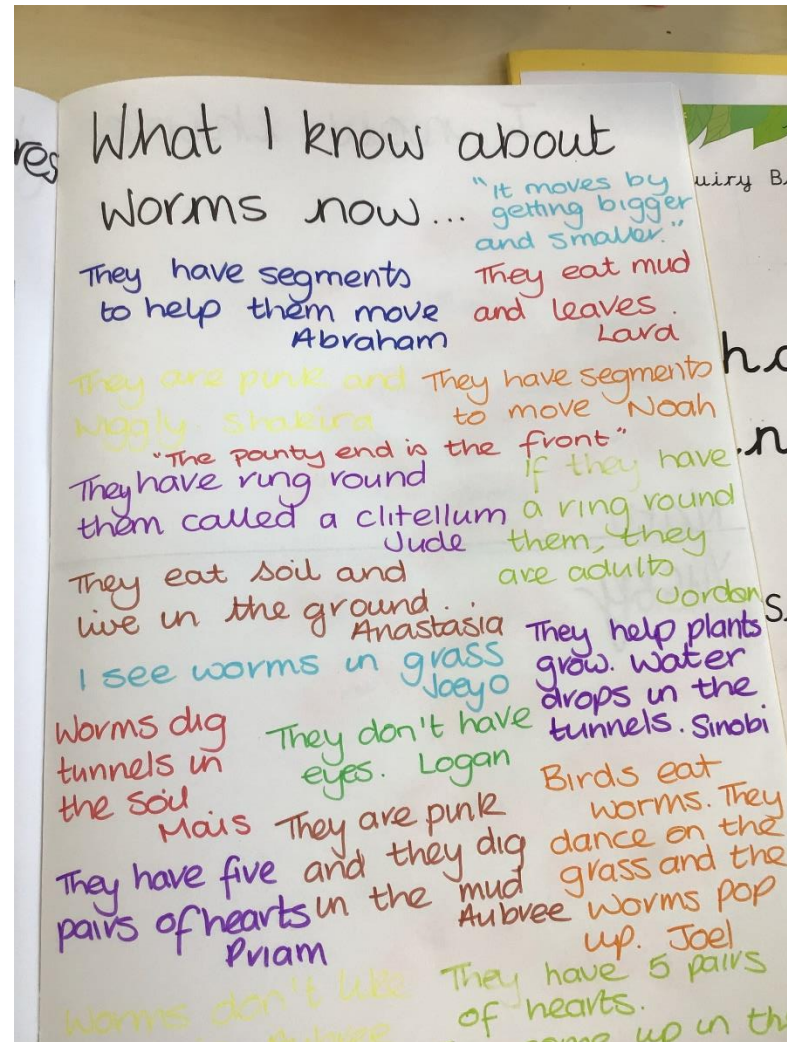 res
What I know about
worms now...
"It moves by
getting bigger
and smaller."
They have segments
to help them move
Abraham
They eat mud
and leaves.
Lara
They are pink and
wiggly. Shakira
They have segments
to move Noah
"The pointy end is the front"
They have ring round
them called a clitellum
Jude
If they have
a ring round
them, they
are adults
Jordon
They eat soil and
live in the ground.
Anastasia
I see worms in grass
Joeyo
They help plants
grow. Water
drops in the
tunnels. Sinobi
Worms dig
tunnels in
the soil.
Mais
They don't have
eyes. Logan
Birds eat
worms. They
dance on the
grass and the
worms pop
up. Joel
They have five
pairs of hearts
Priam
They are pink
and they dig
in the mud
Aubree
Worms don't like
Aubree
They have 5 pairs
of hearts.
come up in th
uiry B